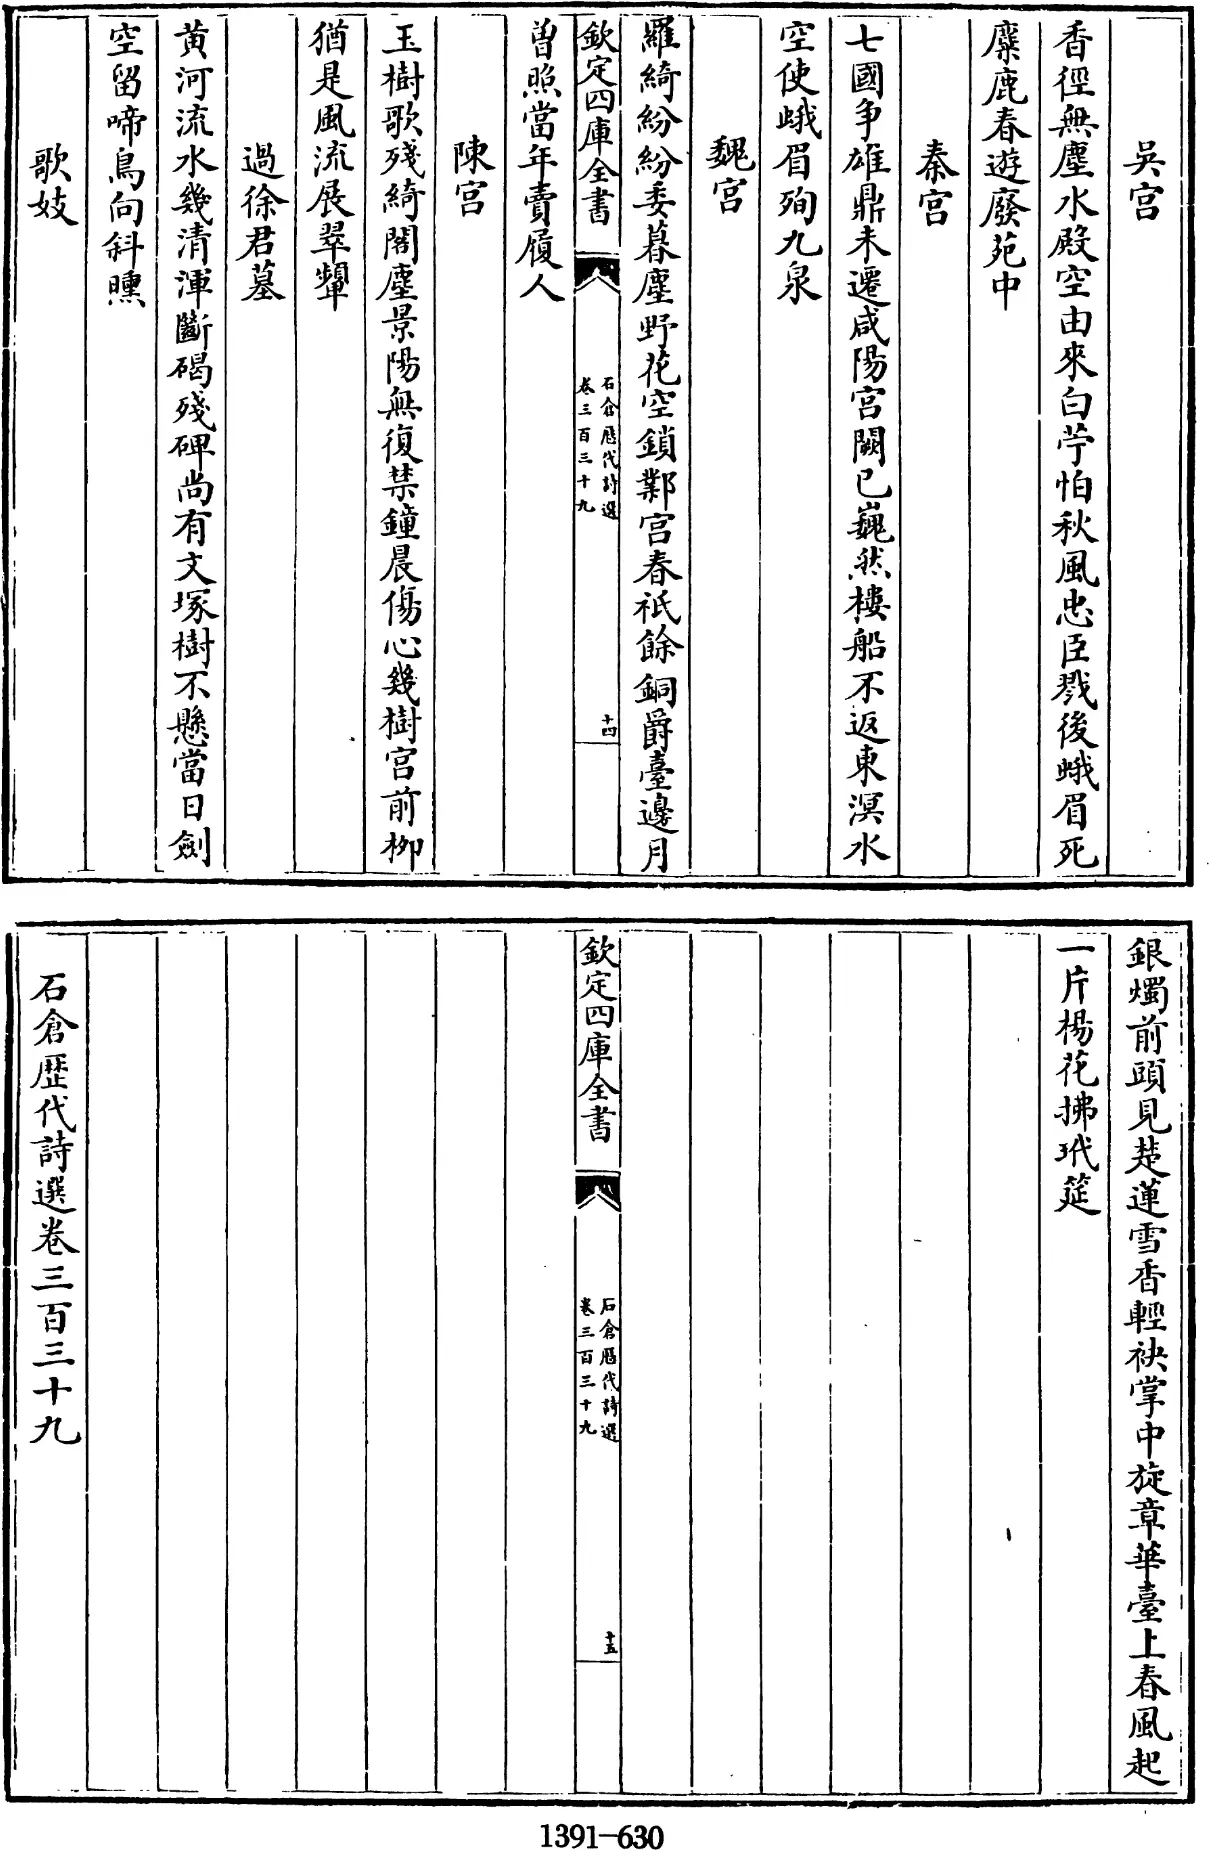 吳宫
香徑無塵水殿空由來白苧怕秋風忠臣戮後蛾眉死
麋鹿春遊廢苑中
秦宫
七國争雄鼎未遷咸陽宫闕已巍然樓船不返東溟水
空使蛾眉殉九泉
魏宫
羅綺紛紛委暮塵野花空鎖鄴宫春祇餘銅爵臺邊月
欽定四庫全書
石倉歴代詩選
卷三百三十九
十四
曽照當年賣履人
陳宫
玉樹歌殘綺閣塵景陽無復禁鐘晨傷心幾樹宫前栁
猶是風流展翠顰
過徐君墓
黄河流水幾清渾斷碣殘碑尚有文塚樹不懸當日劍
空留啼鳥向斜曛
歌妓
銀燭前頭見楚蓮雪香輕袂掌中旋章華臺上春風起
一片楊花拂玳筵
欽定四庫全書
石倉歴代詩選
卷三百三十九
十五
石倉歴代詩選卷三百三十九
1391-630